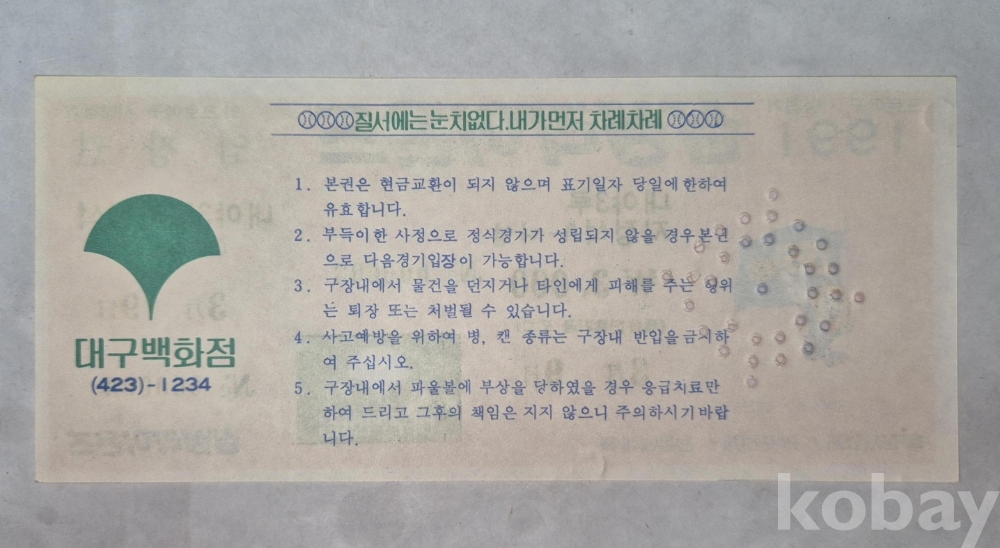 질서에는 눈치없다. 내가먼저 차례차례
1. 본권은 현금교환이 되지 않으며 표기일자 당일에 한하여
유효합니다.
2. 부득이한 사정으로 정식경기가 성립되지 않을 경우 본권
으로 다음경기입장이 가능합니다.
3. 구장내에서 물건을 던지거나 타인에게 피해를 주는 행위
는 퇴장 또는 처벌될 수 있습니다.
4. 사고예방을 위하여 병, 캔 종류는 구장내 반입을 금지하
여 주십시오.
5. 구장내에서 파울볼에 부상을 당하였을 경우 응급치료만
하여 드리고 그후의 책임은 지지 않으니 주의하시기 바랍
니다.
대구백화점
(423)-1234
kobay